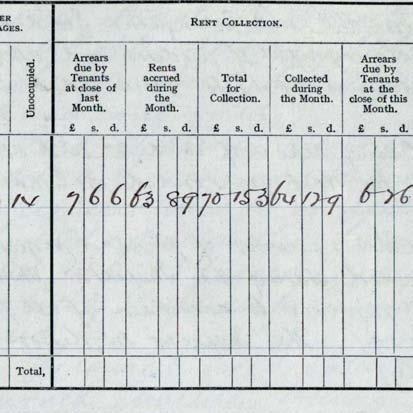 ER
AGES.
RENT COLLECTION.
Unoccupied.
Arrears
due by
Tenants
at close of
last
Month.
Rents
accrued
during
the
Month.
Total
for
Collection.
Collected
during
the Month.
Arrears
due by
Tenants
at the
close of this
Month.
£ s. d. £ s. d. £ s. d. £ s. d. £ s. d.
14 7 6 6 63 8 9 70 15 3 64 12 9 6 2 6
Total,